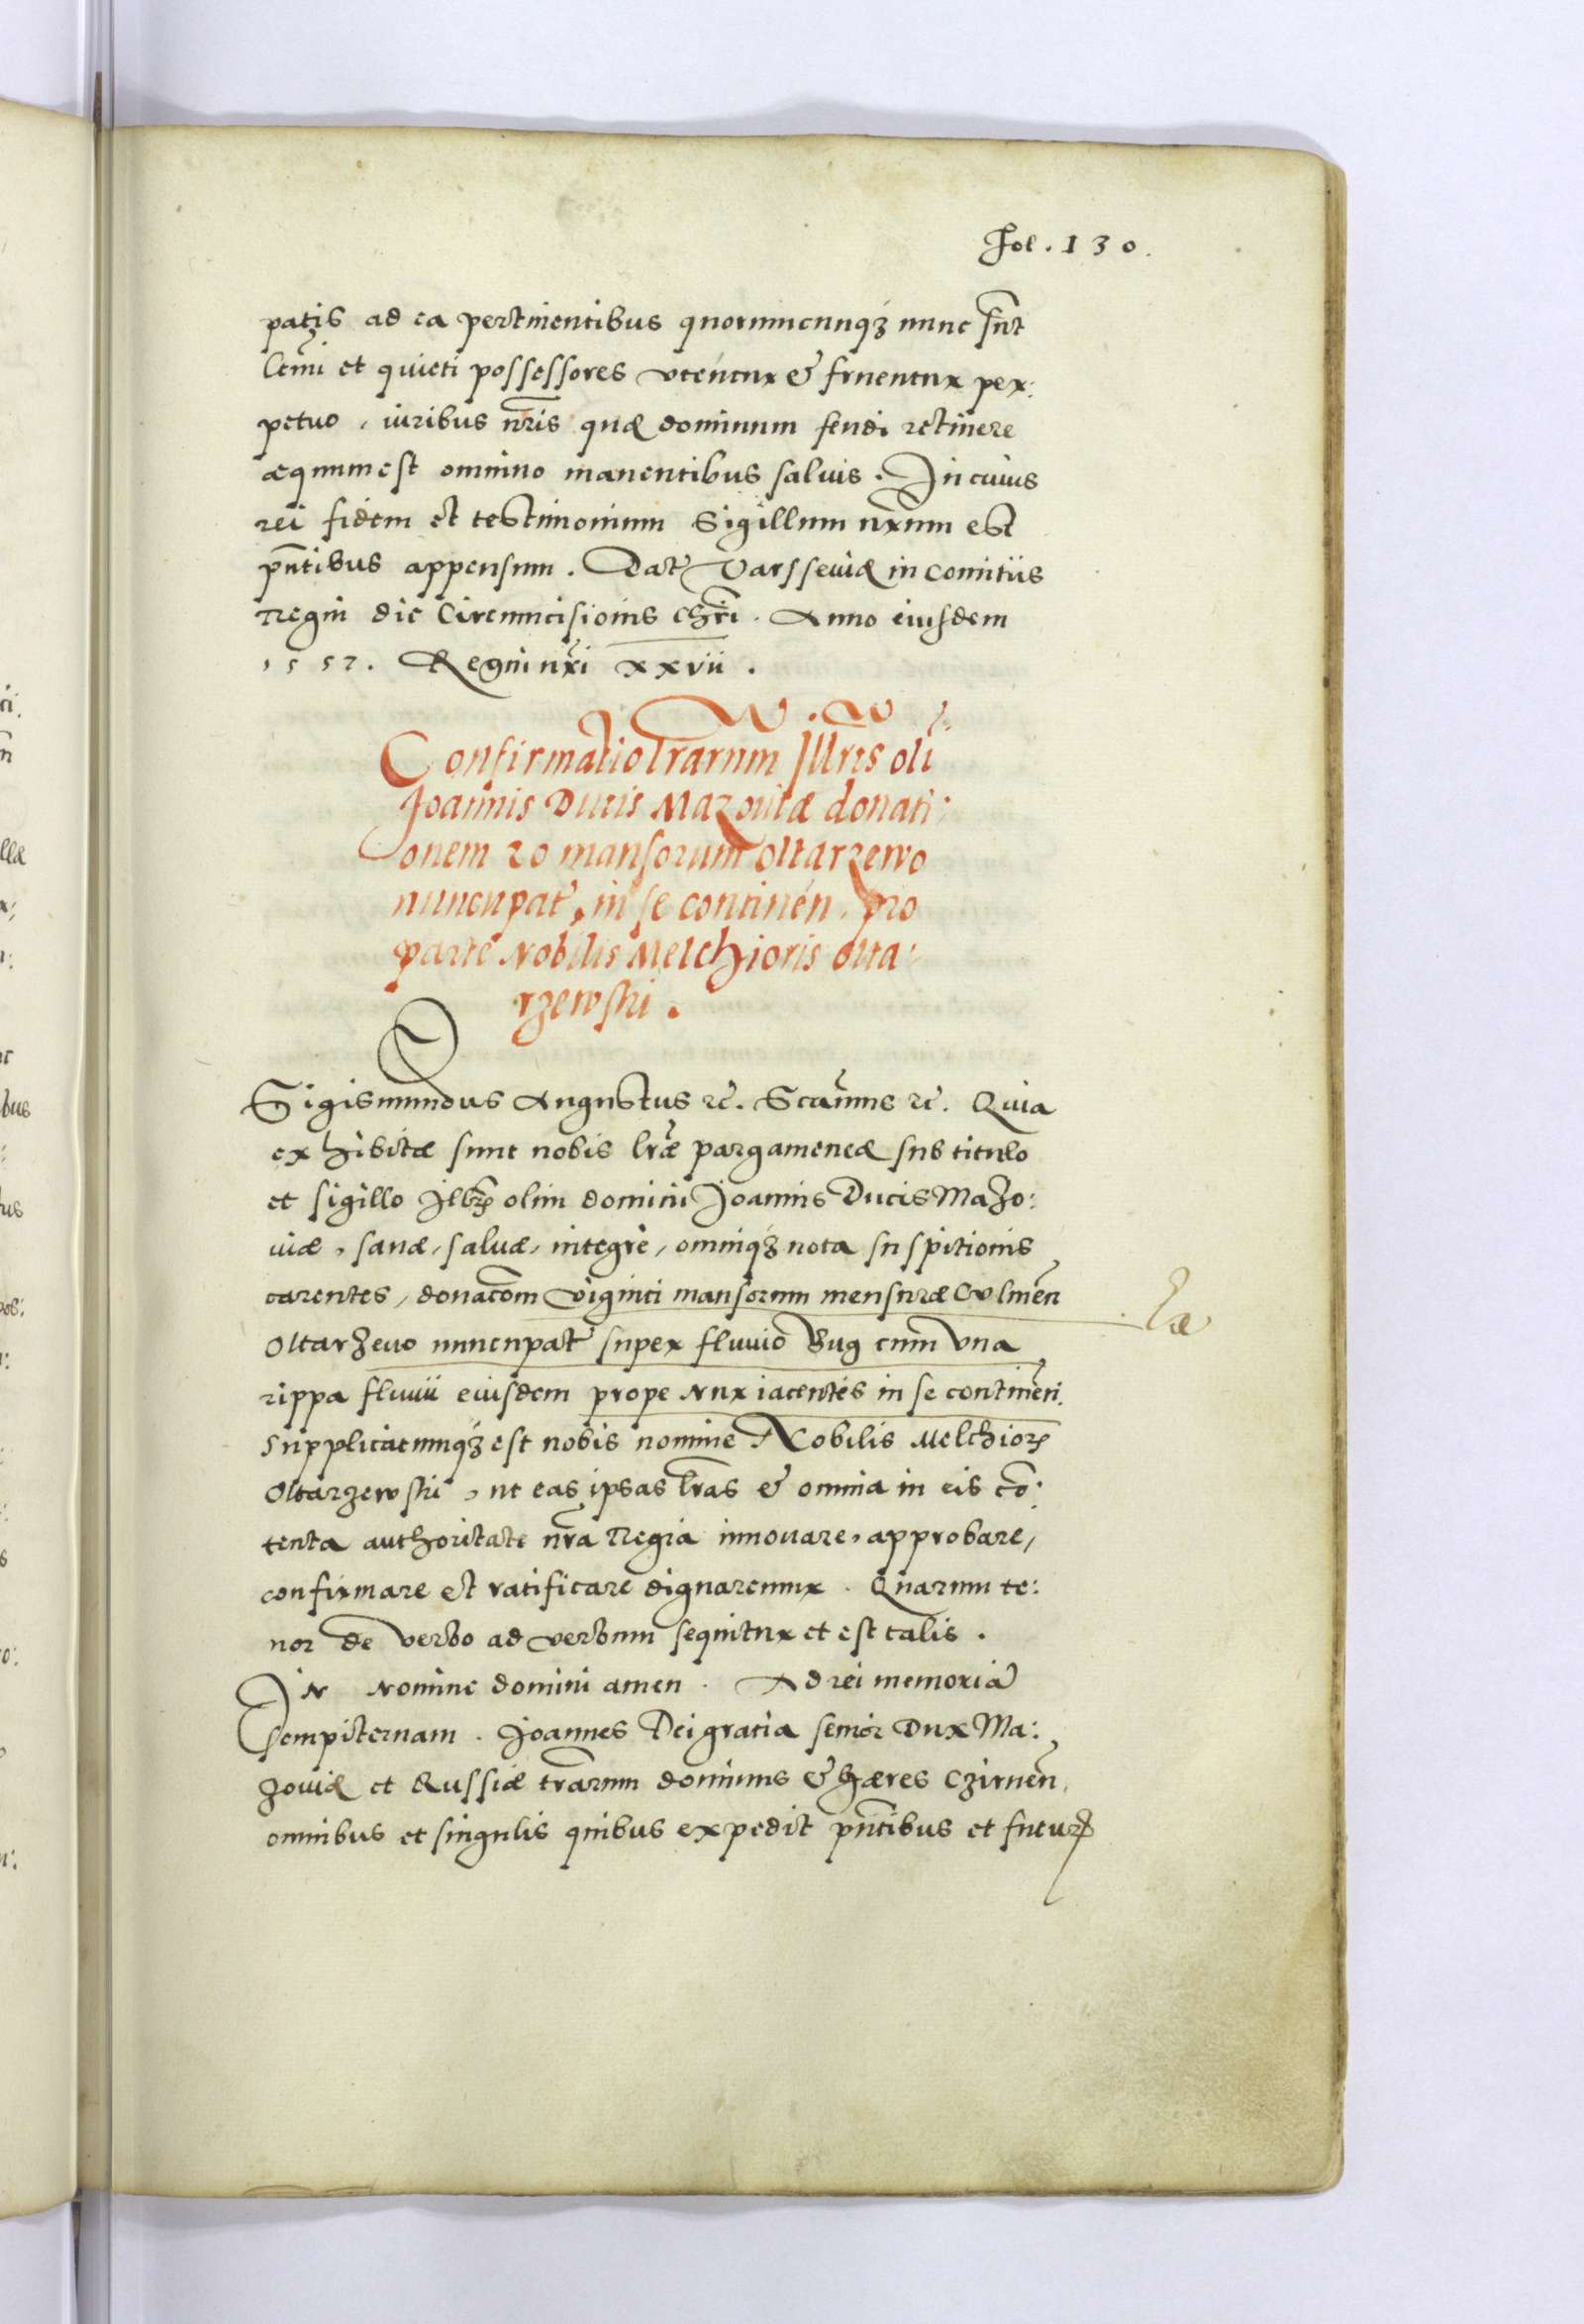 Fol. 130.
patis ad ea pertinentibus quorumcunqꝫ nunc sn̄t
legitimi et quieti possessores vtentur & fruentur per:
petuo, iuribus nr̄is quæ dominum feudi retinere
æquum est omnino manentibus saluis. In cuius
rei fidem et testimonium Sigillum nr̄um est
pn̄tibus appensum. Dat Varsseuiæ in Comitiis
Regni die Circumcisionis Chr̄i. Anno eiusdem
1557. Regni nr̄i xxvii.
Confirmatio lr̄arum Illr̄is oli
Joannis Ducis Mazouiæ donati:
onem 20 mansorum Oltarzewo
nuncupat, in se continen̄. pro
parte Nobilis Melchioris olta:
rzewski.
Sigismundus Augustus ꝛc. Sca͞mus ꝛc. Quia
exhibitæ sunt nobis lr̄æ pargameneæ sub titulo
et sigillo Illr̄is olim domini Joannis Ducis Mazo:
uiæ, sanæ, saluæ, integre, omniqꝫ nota suspitionis
carentes, donacōm viginti mansorum mensuræ Culmen̄
Oltarzeuo nuncupat super fluuio Bug cum vna
rippa fluuii eiusdem prope Nur iacentes in se continen̄.
Supplicatumqꝫ est nobis nomine Nobilis Melchioris
Oltarzewski, ut eas ipsas lr̄as & omnia in eis cō:
tenta authoritate nr̄a Regia innouare, approbare,
confirmare et ratificare dignaremur. Quarum te:
nor de verbo ad verbum sequitur et est talis.
IN Nomine domini amen. Ad rei memoriā
sempiternam. Joannes Dei gratia senior Dux Ma:
zouiæ et Russiæ tr̄arum dominus & hæres Czirnen̄.
omnibus et singulis quibus expedit pn̄tibus et futuꝝ